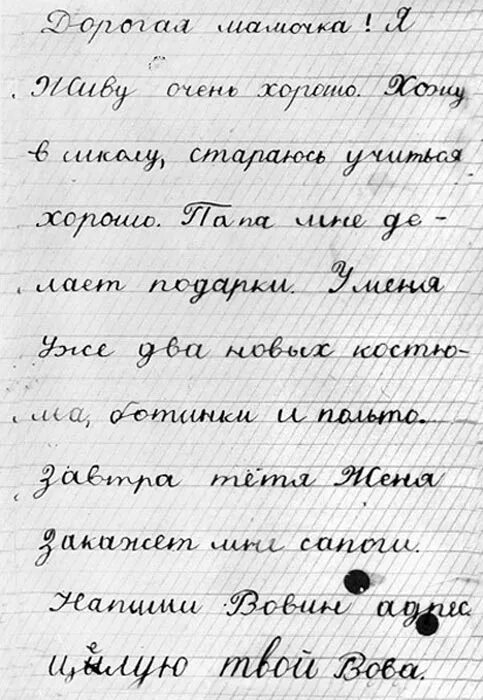 Дорогая мамочка! Я
живу очень хорошо. Хожу
в школу, стараюсь учиться
хорошо. Папа мне де-
лает подарки. У меня
уже два новых костю-
ма, ботинки и польто.
Завтра тётя Женя
закажет мне сапоги.
Напиши Вовин адрес
целую твой Вова.